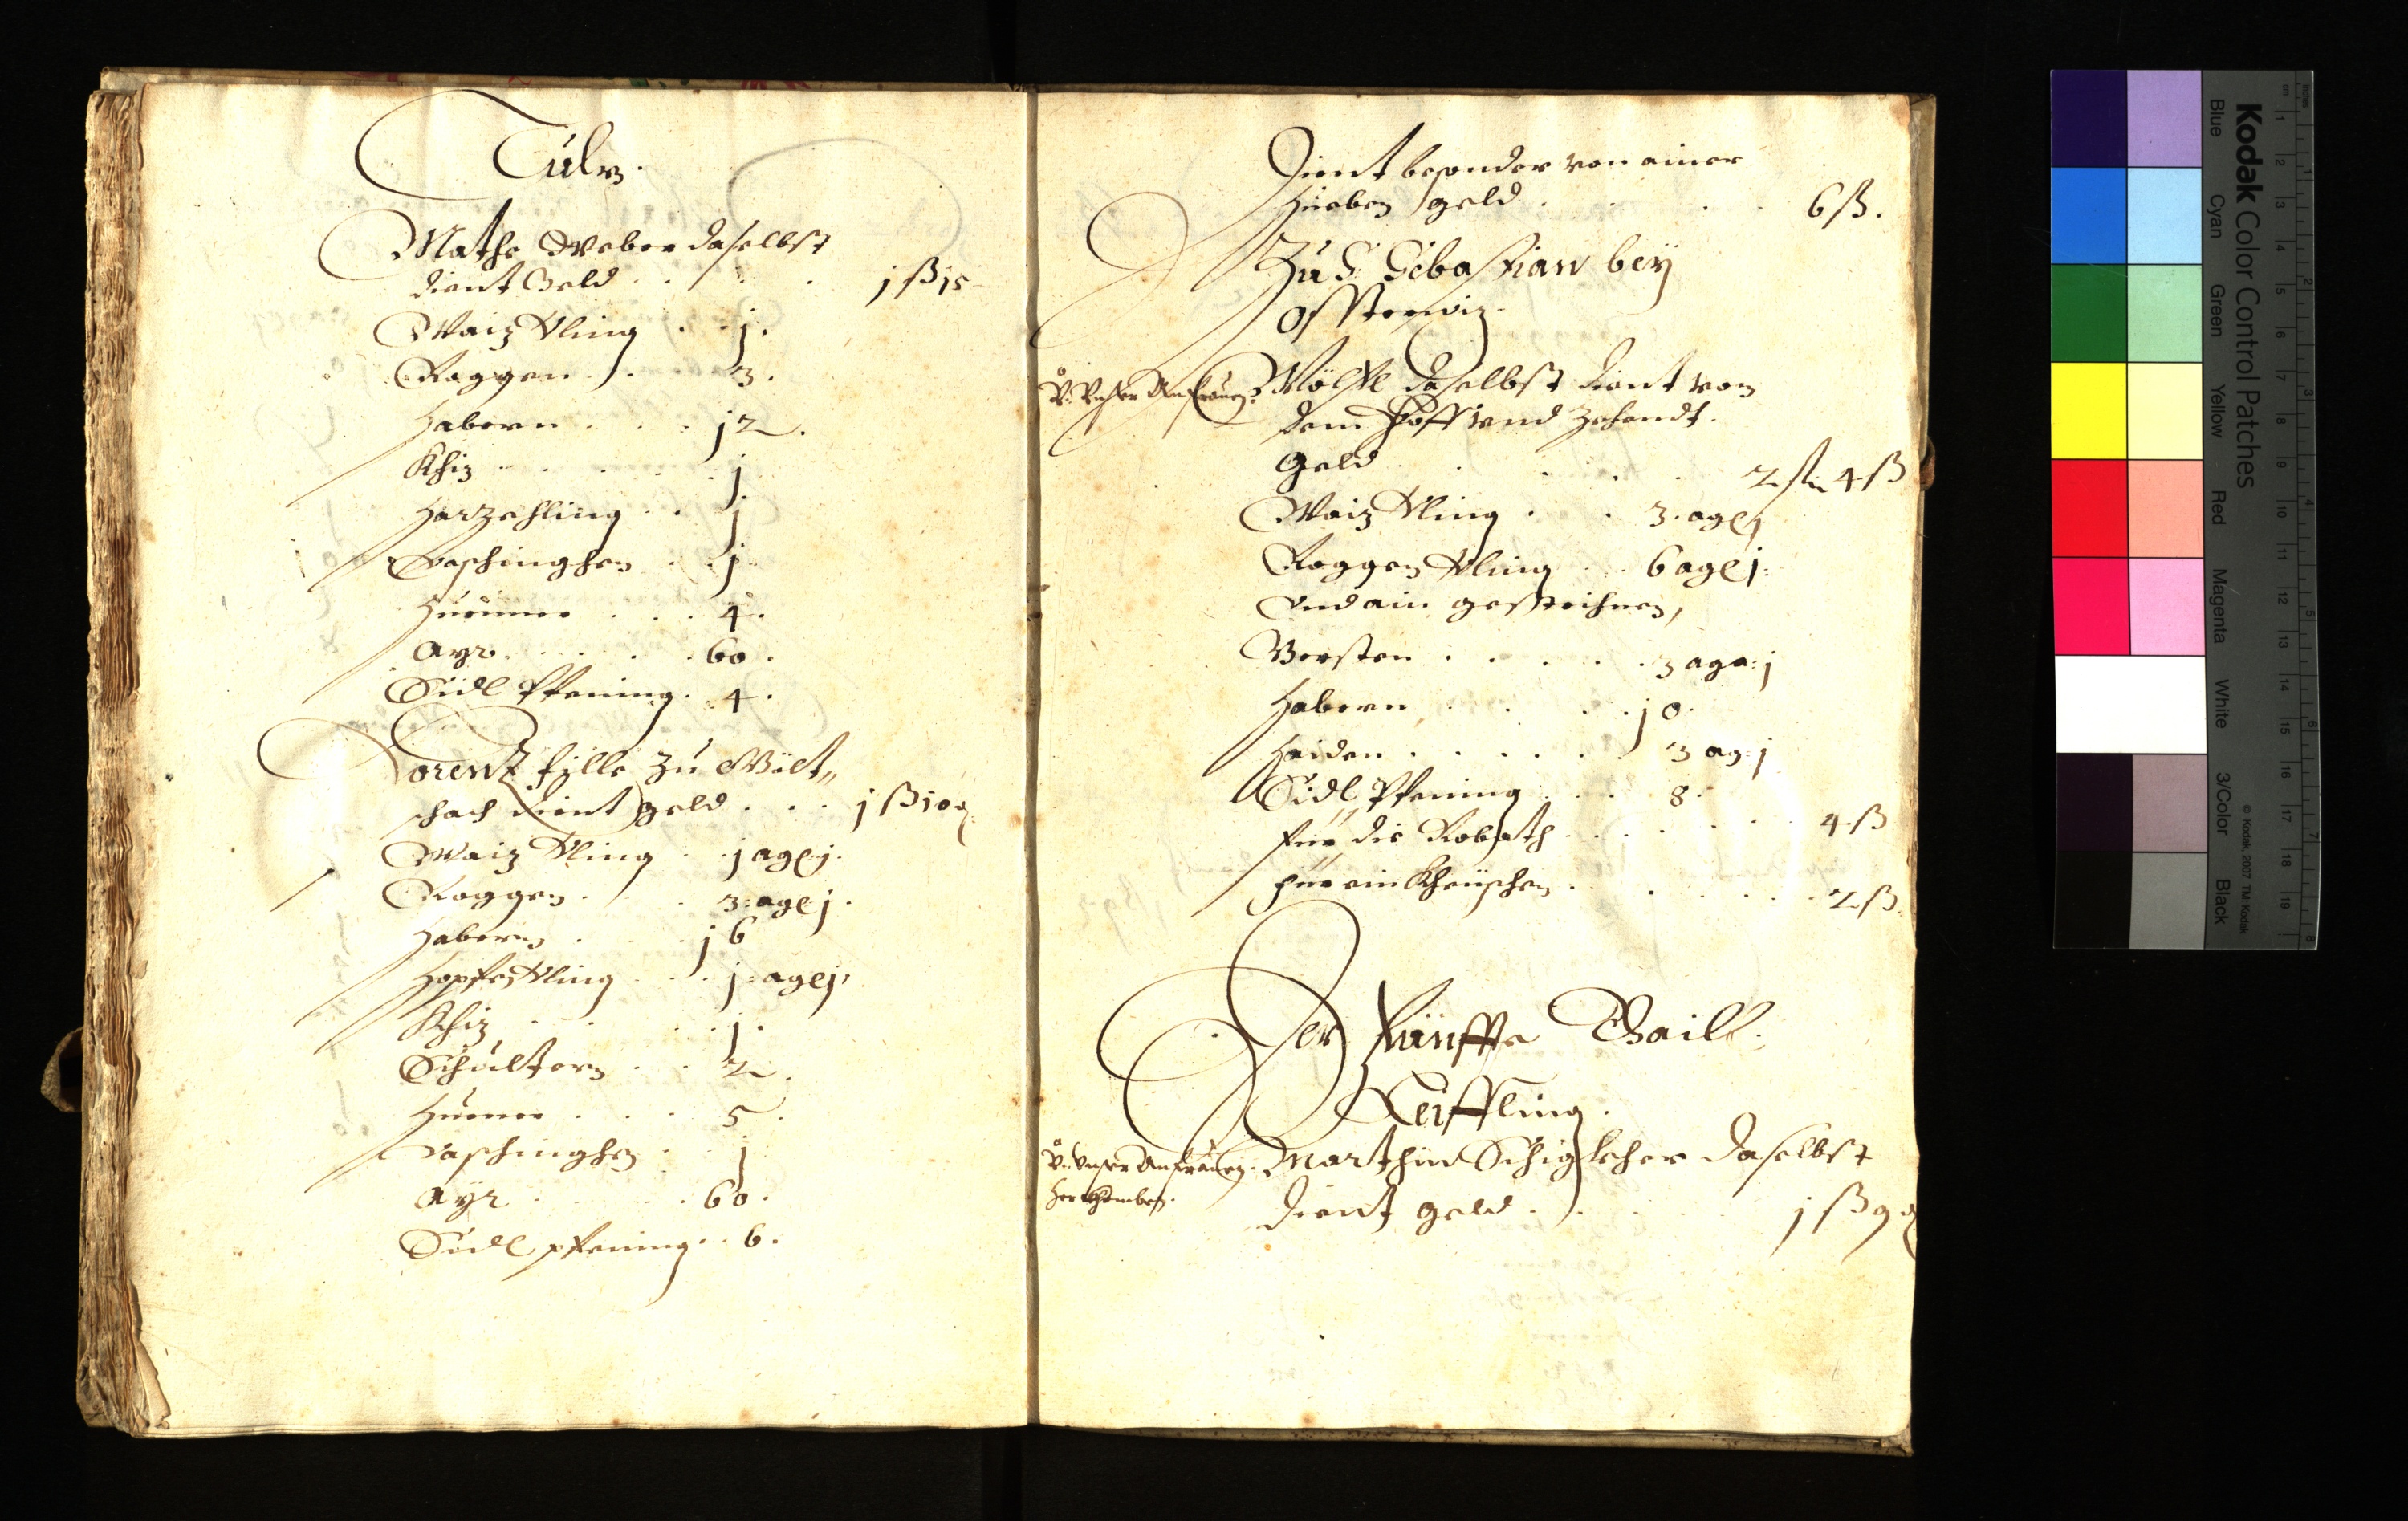 Tuln.
Mathe Weber daselbst
dient Geld . . . . jß15
Waiz Vling . . j.
Roggen . . 3.
Habern . . . j2.
Khiz . . . . j
Harzehling . . j
Vaschinghen . . j
Huenner . . . 4.
Ayr . . . . . 60.
Sidl Pfening . 4.
Lorenz Fille zu Wüet„
schach dient geld . . . jß10₰
Waiz Vling . . j age j.
Roggen . . 3: age j.
Habern . . . j6
Hopfen Vling . . j: age j
Khiz . . . . j.
Schultern . . 2.
Huener . . . 5.
Vaschinghen . j
Ayr . . . . . 60.
Sidl pfening . . 6.
Dient besonder von ainer
Hueben geld . . . . 6ß.
Zu S: Sebastian bey
Ossterwiz.
Wölfl daselbst dient von
dem Hoff vnd Zehendt.
Geld . . . . . 2 fl 4ß
Waiz Vling . . 3. age j
Roggen Vling . . 6 age j:
Vnd ain gestrichnen,
Gersten . . . . . 3 age: j
Habern . . . . j0.
Haiden . . . . . 3 ag: j
Sidl Pfening . . . 8.
für die Robath . . . . . . 4ß
für ein Kheuschen . . . . . 2ß.
Der Fünffte Thaill.
Teiffling.
V: Vnser Anfrauen. Marthin Schigkher daselbst
dient geld . . . . . jß9₰